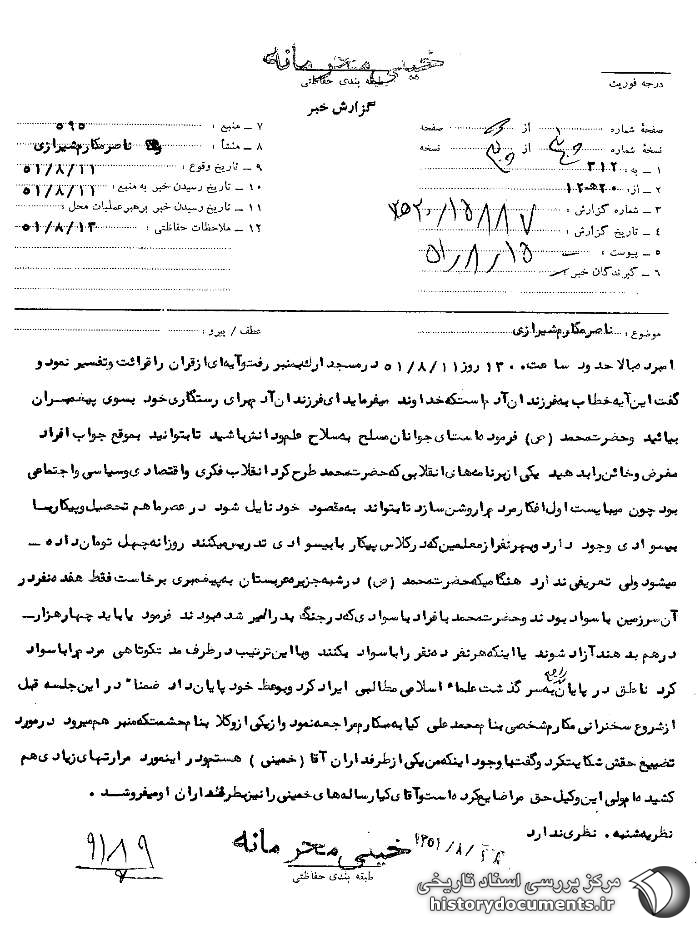 خیلی محرمانه
طبقه بندی حفاظتی
درجه فوریت
گزارش خبر
صفحهٔ شماره ۱ از ۲ صفحه
نسخهٔ شماره از نسخه
۱ ــ به : ۳۱۲
۲ ــ از : ۲۰ ه ۱۲
۳ ــ شماره گزارش :
۴ ــ تاریخ گزارش : ۵۱/۸/۱۵
۵ ــ پیوست :
۶ ــ گیرندگان خبر
۷ ــ منبع : ۵۹۵
۸ ــ منشأ : ناصر مکارم شیرازی
۹ ــ تاریخ وقوع : ۵۱/۸/۱۱
۱۰ ــ تاریخ رسیدن خبر به منبع : ۵۱/۸/۱۱
۱۱ ــ تاریخ رسیدن خبر برهبر عملیات محل : ۵۱/۸/۱۳
۱۲ ــ ملاحظات حفاظتی :
موضوع : ناصر مکارم شیرازی
عطف / پیرو :
نامبرده بالا حدود ساعت ۱۳۰۰ روز ۵۱/۸/۱۱ در مسجد ارک بمنبر رفت و آیه‌ای از قران را قرائت و تفسیر نمود و
گفت این آیه خطاب به فرزندان آدم است که خداوند میفرماید ای فرزندان آدم برای رستگاری خود بسوی پیغمبران
بیائید و حضرت محمد (ص) فرموده است ای جوانان مسلح به سلاح علم و دانش باشید تا بتوانید بموقع جواب افراد
مغرض و خائن را بدهید یکی از برنامه‌های انقلابی که حضرت محمد طرح کرد انقلاب فکری و اقتصادی و سیاسی و اجتماعی
بود چون میبایست اول افکار مردم را روشن سازد تا بتواند به مقصود خود نایل شود در عصر ما هم تحصیل و پیکار با
بیسوادی وجود دارد و بهر نفر از معلمین که در کلاس پیکار با بیسوادی تدریس میکنند روزانه چهل تومان داده ــ
میشود ولی تعریفی ندارد هنگامیکه حضرت محمد (ص) در شبه جزیره عربستان به پیغمبری برخاست فقط هفده نفر در
آن سرزمین باسواد بودند و حضرت محمد با افراد باسوادی که در جنگ بدر اسیر شده بودند فرمود یا باید چهار هزار ــ
درهم بدهند آزاد شوند یا اینکه هر نفر ده نفر را باسواد بکنند و با این ترتیب در ظرف مدت کوتاهی مردم را باسواد
کرد ناطق در پایان به سر گذشت علماء اسلامی مطالبی ایراد کرد و بوعظ خود پایان داد ضمناً در این جلسه قبل
از شروع سخنرانی مکارم شخصی بنام محمد علی کیا به مکارم مراجعه نمود و از یکی از وکلا بنام حشمت که منبر هم میرود در مورد
تضییع حقش شکایت کرد و گفت با وجود اینکه من یکی از طرفداران آقا (خمینی) هستم و در اینمورد مرارتهای زیادی هم
کشیده‌ام ولی این وکیل حق مرا ضایع کرده است و آقای کیا رساله‌های خمینی را نیز بطرفداران او میفروشد .
نظریه شنبه . نظری ندارد
خیلی محرمانه
طبقه بندی حفاظتی
۹۱۸۹
مرکز بررسی اسناد تاریخی
historydocuments.ir